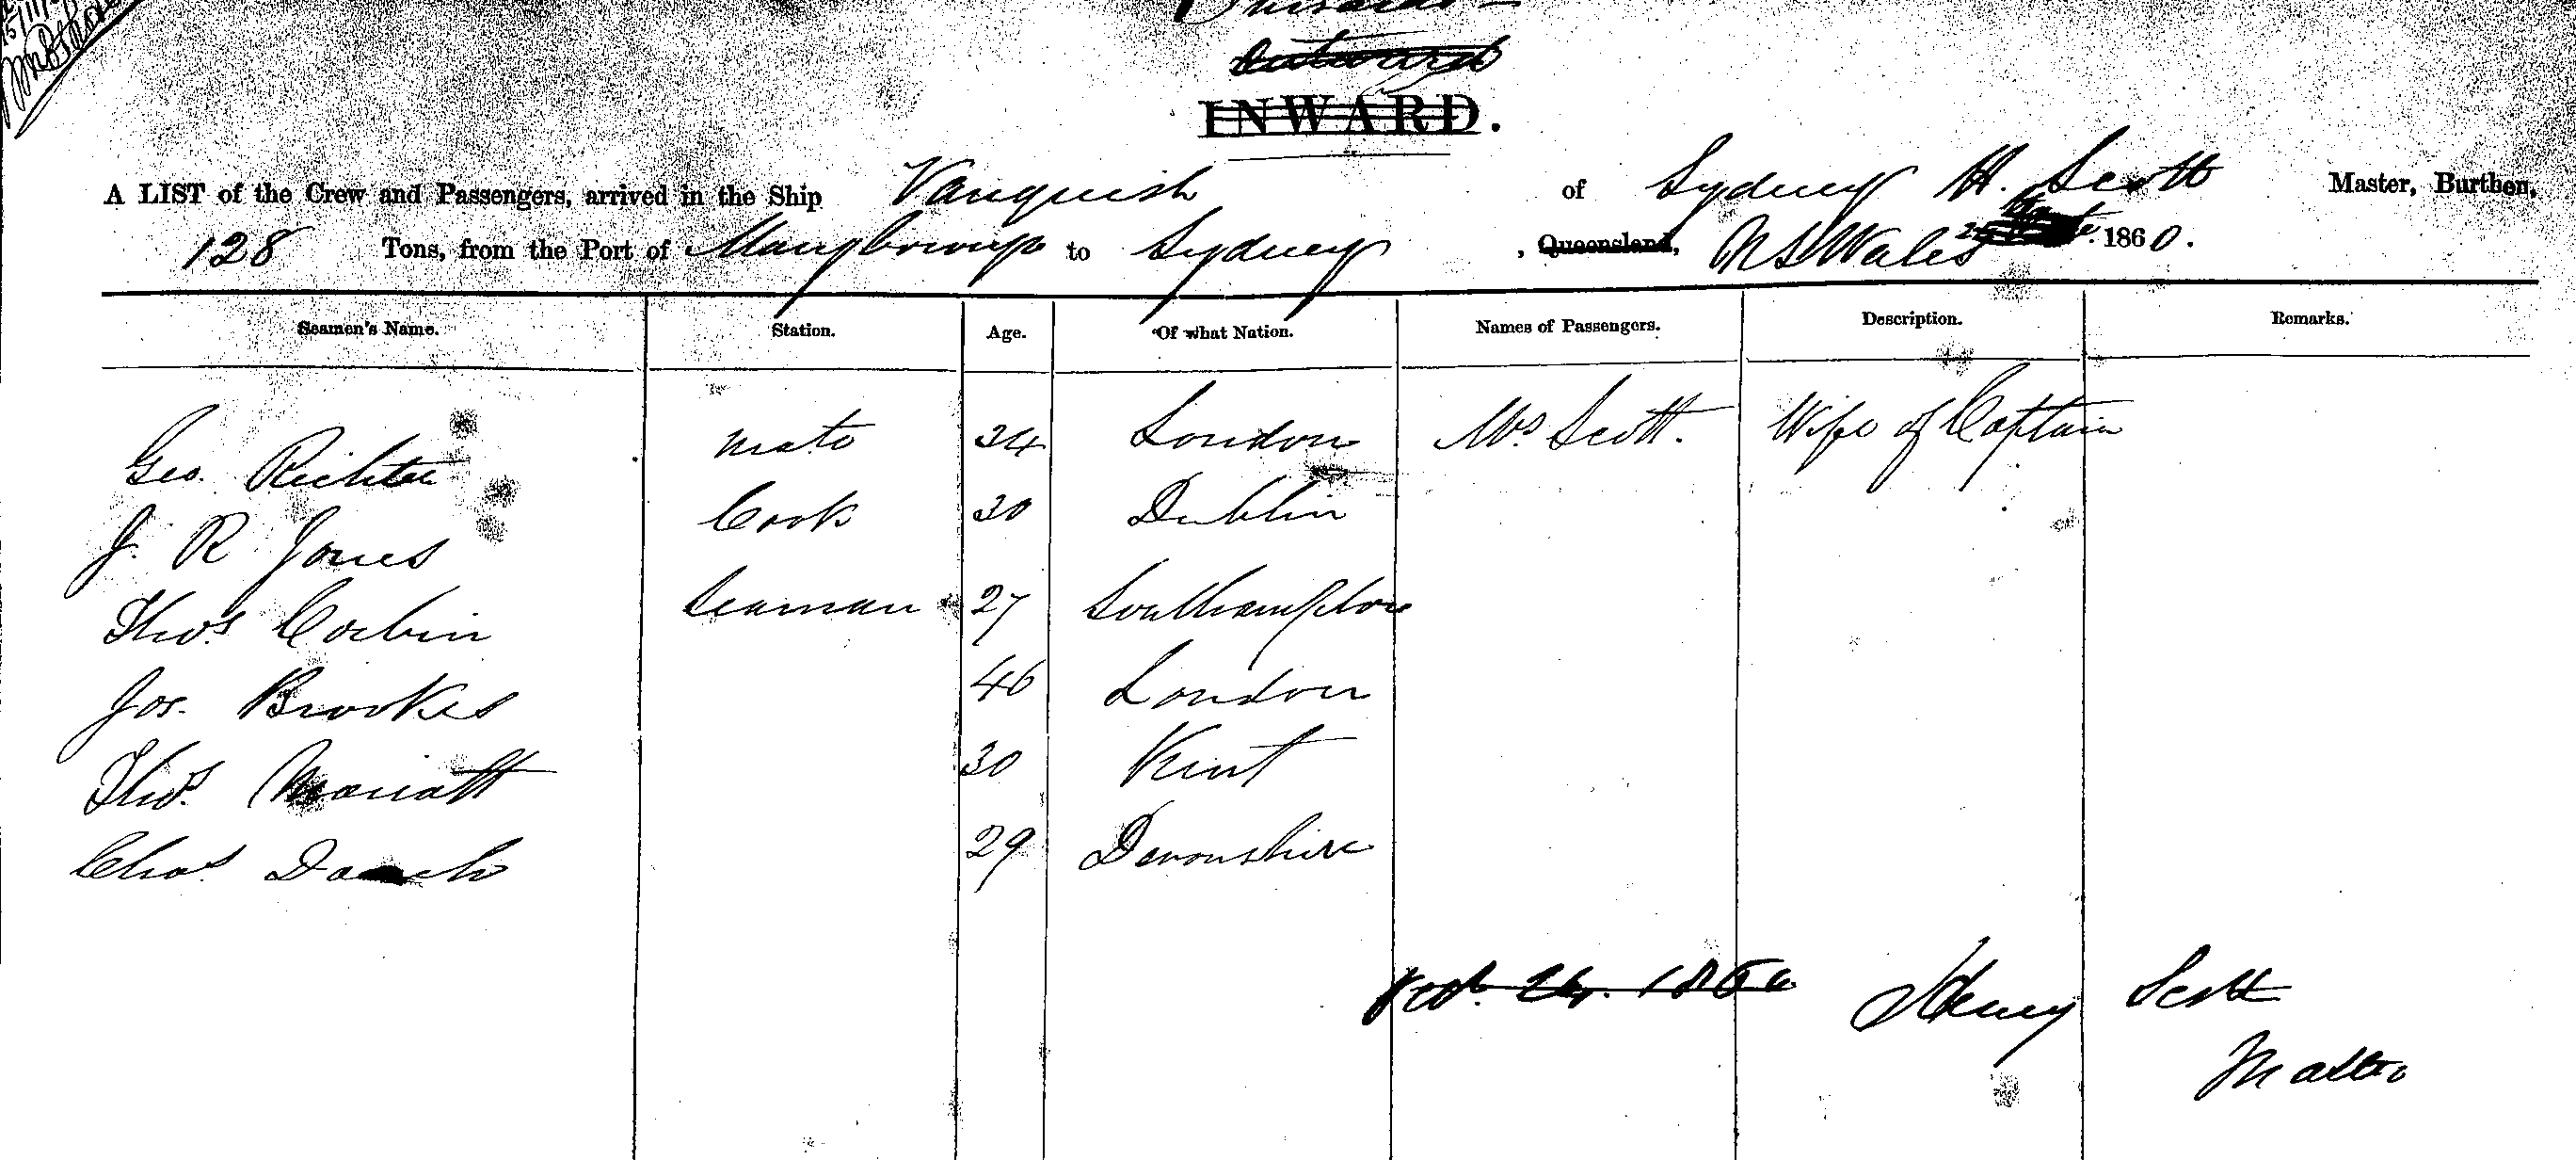 Outward
INWARD.
A LIST of the Crew and Passengers, arrived in the Ship Vanquish of Sydney H. Scott Master, Burthen,
128 Tons, from the Port of Maryborough to Sydney , Queensland, N S Wales 1860.
Seamen's Name. Station. Age. Of what Nation. Names of Passengers. Description. Remarks.
Geo. Richter mate 34 London Mrs. Scott. Wife of Captain
J. R Jones Cook 30 Dublin
Thos. Corbin Seaman 27 Southampton
Jos. Brookes 46 London
Thos. Marriatt 30 Kent
Chas. 29 Devonshire
1860 Henry Scott
Master